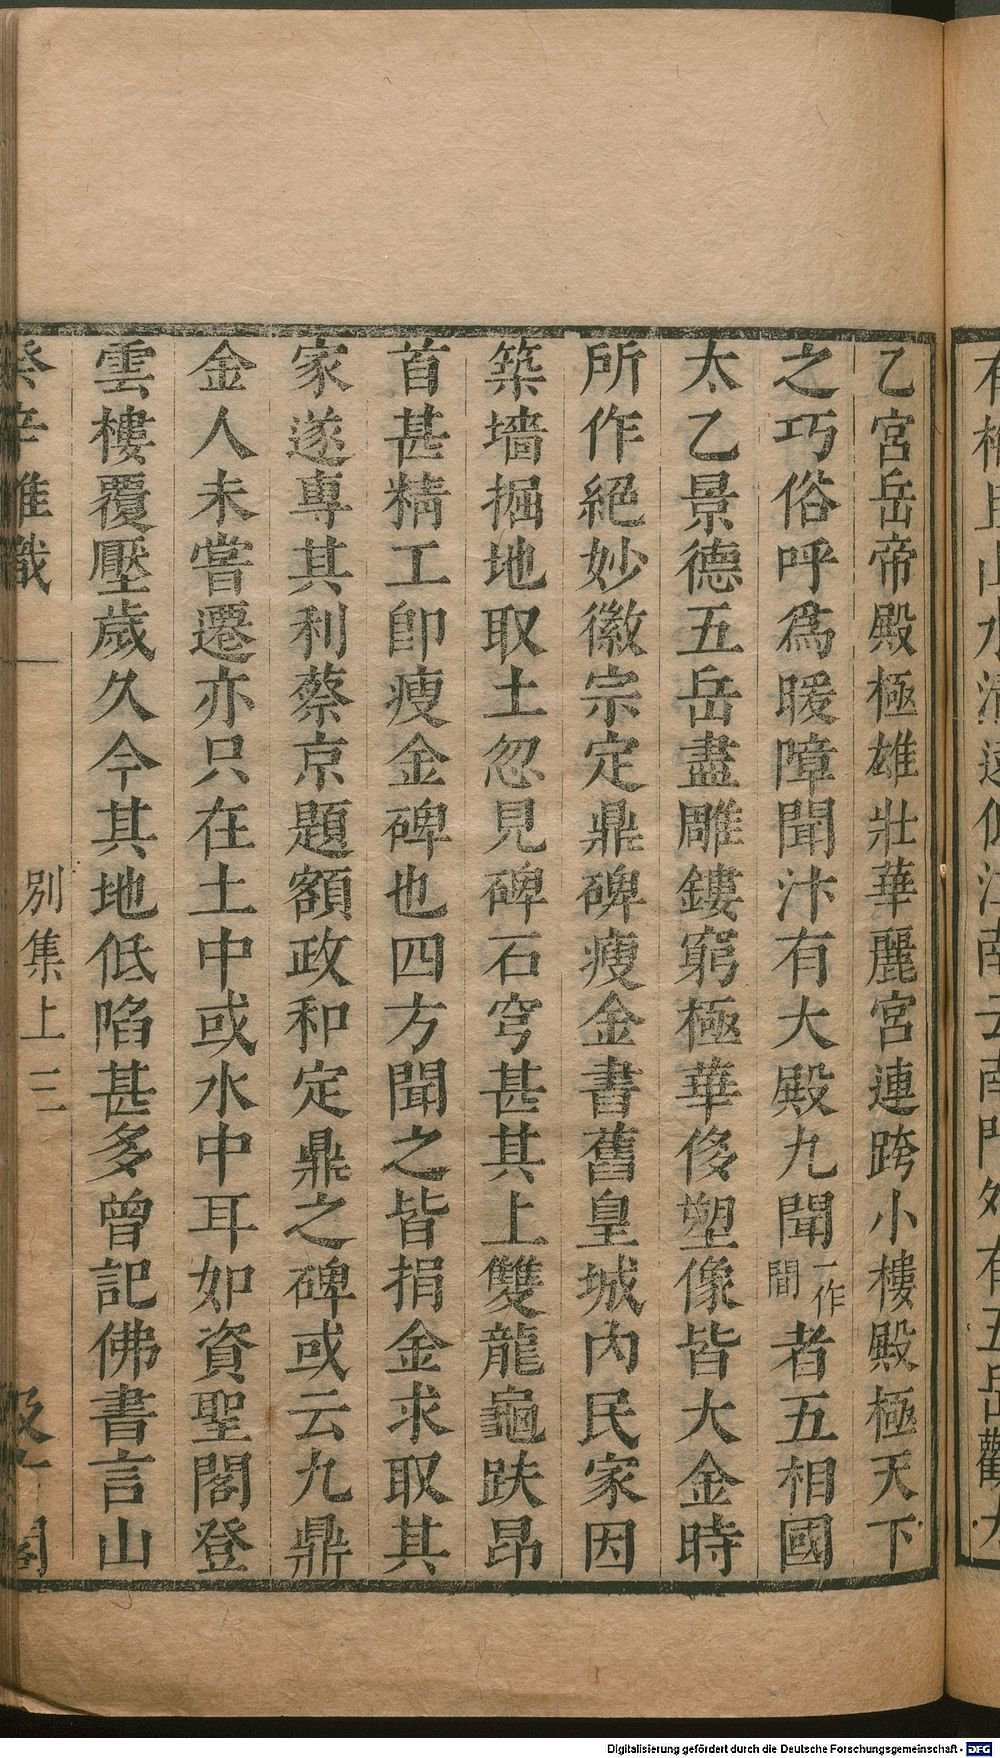 乙宮岳帝殿極雄壯華麗宮連跨小樓殿極天下
之巧俗呼爲暖障聞汴有大殿九聞一作間者五相國
太乙景德五岳盡雕鏤窮極華侈塑像皆大金時
所作絕妙徽宗定鼎碑瘦金書舊皇城內民家因
築墻掘地取土忽見碑石穹甚其上雙龍龜趺昂
首甚精工卽瘦金碑也四方聞之皆捐金求取其
家遂專其利蔡京題額政和定鼎之碑或云九鼎
金人未嘗遷亦只在土中或水中耳如資聖閣登
雲樓覆壓歲久今其地低陷甚多曾記佛書言山
癸辛雜識 別集上 三
Digitalisierung gefördert durch die Deutsche Forschungsgemeinschaft - DFG